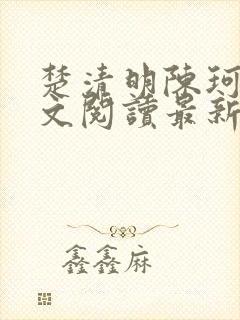 楚清明陳珂
文閱讀最新
鑫鑫麻